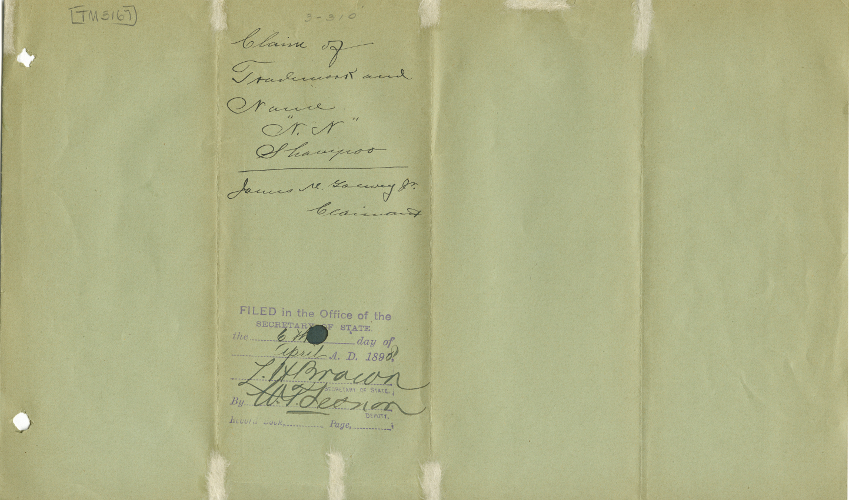 TM3167
3-310
Claim of
Trademark and
Name
"N. N"
Shampoo
James M.
Claimant
FILED in the Office of the
SECRETARY OF STATE
the 6th day of
April A. D. 1898
L. H. Brown
SECRETARY OF STATE
By
Record Book Page